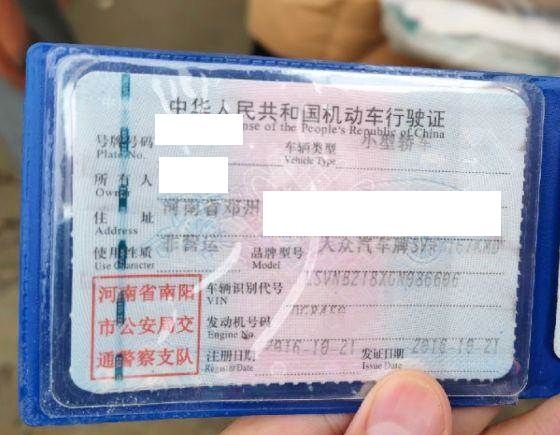 中华人民共和国机动车行驶证
nse of the People's Republic of China
号牌号码
Plate No.
车辆类型 小型轿车
Vehicle Type
所有人
Owner
住址 河南省邓州
Address
使用性质 非营运 品牌型号 大众汽车牌
Use Character Model
河南省南阳
市公安局交
通警察支队
车辆识别代号
VIN
发动机号码
Engine No.
注册日期 2016-10-21 发证日期 2016-10-21
Register Date Issue Date